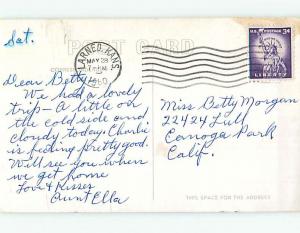 Sat.
POST CARD
LARNED, KANS.
MAY 28
7 PM
U.S. POSTAGE 3¢
LIBERTY
Dear Betty
We had a lovely
trip - A little on
the cold side and
cloudy today. Charlie
is feeling pretty good.
Will see you when
we get home
Love & Kisses
Aunt Ella
Miss Betty Morgan
22424 Lull
Canoga Park
Calif.
THIS SPACE FOR THE ADDRESS